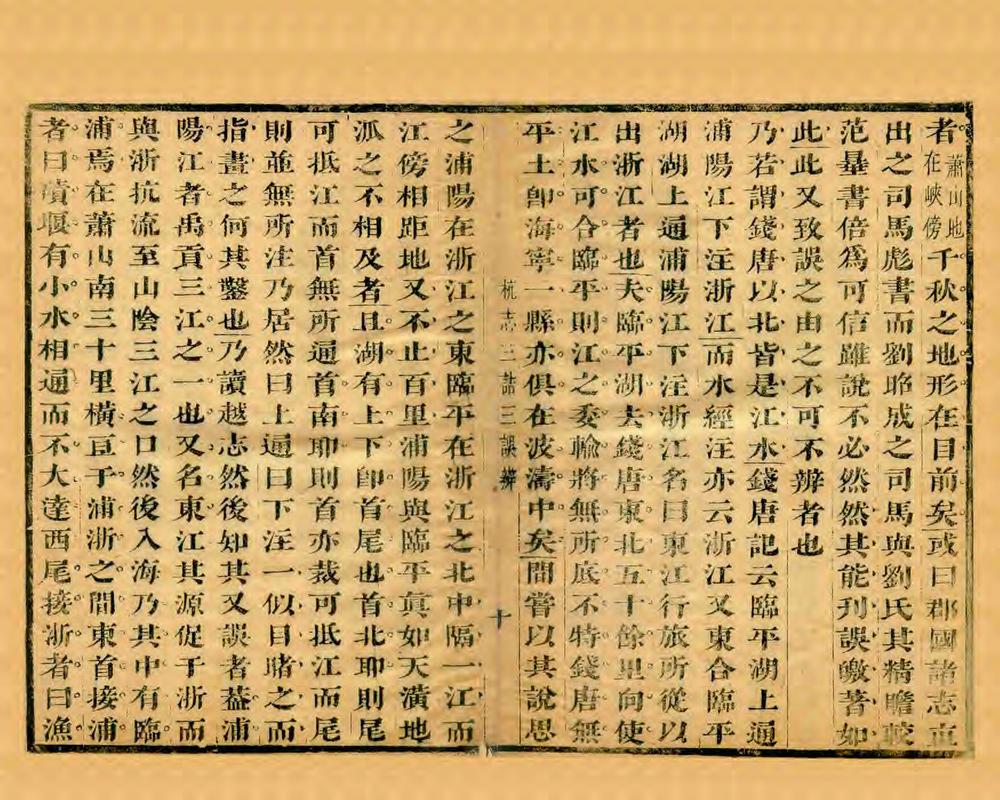 者蕭山地在峽傍千秋之地形在目前矣或曰郡國諸志直
出之司馬彪書而劉昭成之司馬與劉氏其精瞻較
范曅書倍爲可信雖說不必然然其能刋誤皦著如
此此又致誤之由之不可不辨者也
乃若謂錢唐以北皆是江水錢唐記云臨平湖上通
浦陽江下注浙江而水經注亦云浙江又東合臨平
湖湖上通浦陽江下注浙江名曰東江行旅所從以
出浙江者也夫臨平湖去錢唐東北五十餘里向使
江水可合臨平則江之委輸將無所底不特錢唐無
平土卽海寧一縣亦俱在波濤中矣間嘗以其說思
杭志三詰三誤辨 十
之浦陽在浙江之東臨平在浙江之北中隔一江而
江傍相距地又不止百里浦陽與臨平眞如天潢地
泒之不相及者且湖有上下卽首尾也首北耶則尾
可抵江而首無所通首南耶則首亦裁可抵江而尾
則並無所注乃居然曰上通曰下注一似目睹之而
指畫之何其鑿也乃讀越志然後如其又誤者葢浦
陽江者禹貢三江之一也又名東江其源促于浙而
與浙抗流至山陰三江之口然後入海乃其中有臨
浦焉在蕭山南三十里橫亘于浦浙之間東首接浦
者曰磧堰有小水相通而不大達西尾接浙者曰漁